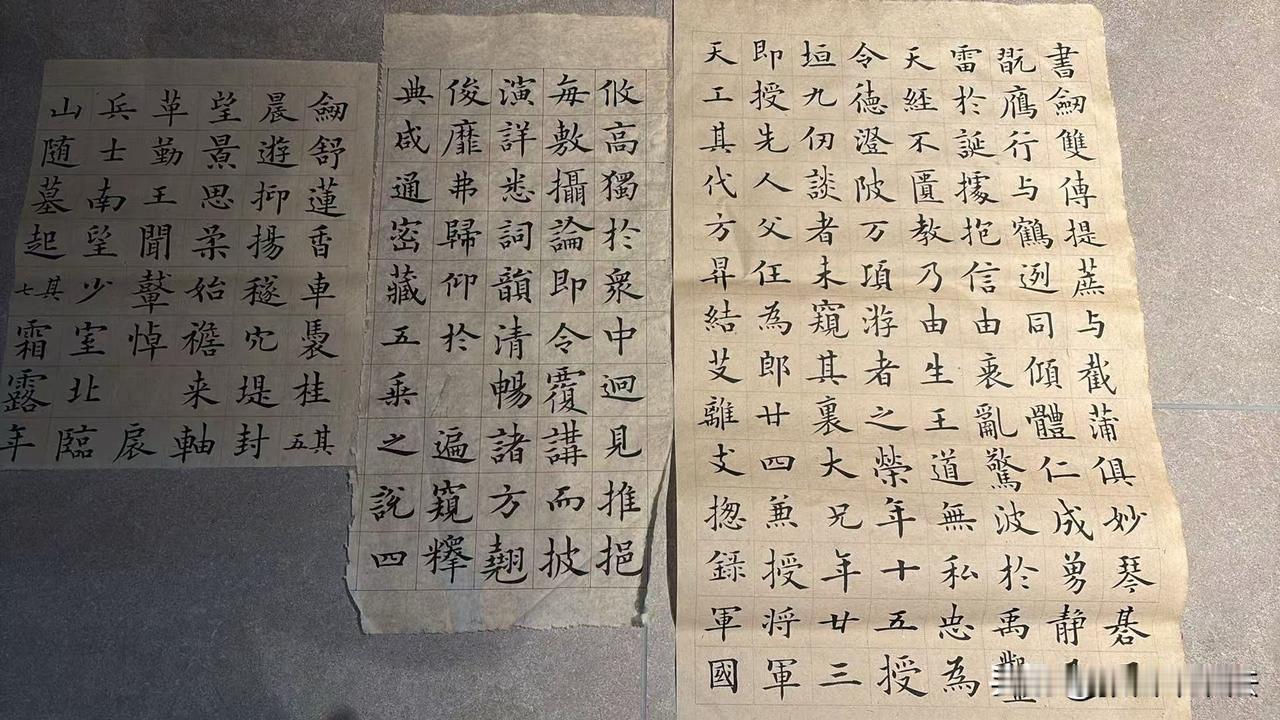 書劒雙傳提蔗与截蒲俱妙琴碁
翫鴈行与鶴迾同傾體仁成勇静
雷於誕據抱信由衷亂驚波於禹
天經不匱教乃由生王道無私忠為
令德澄陂万項游者之榮年十五授
垣九仞談者未窺其裏大兄年廿三
即授先人父任為郎廿四兼授將軍
天工其代方昇結艾離支揔錄軍國
攸高獨於衆中迥見推挹
每敷攝論即令覆講而披
演詳悉詞韻清暢諸方翹
俊靡弗歸仰於遍窺釋
典咸通密藏五乘之說四
劒舒蓮香車裊桂其五
晨遊抑揚穟穴堤封
望景思柔始襜来軸
革勤王聞鼙悼扆
兵士南望少室北臨
山随墓起其七霜露年